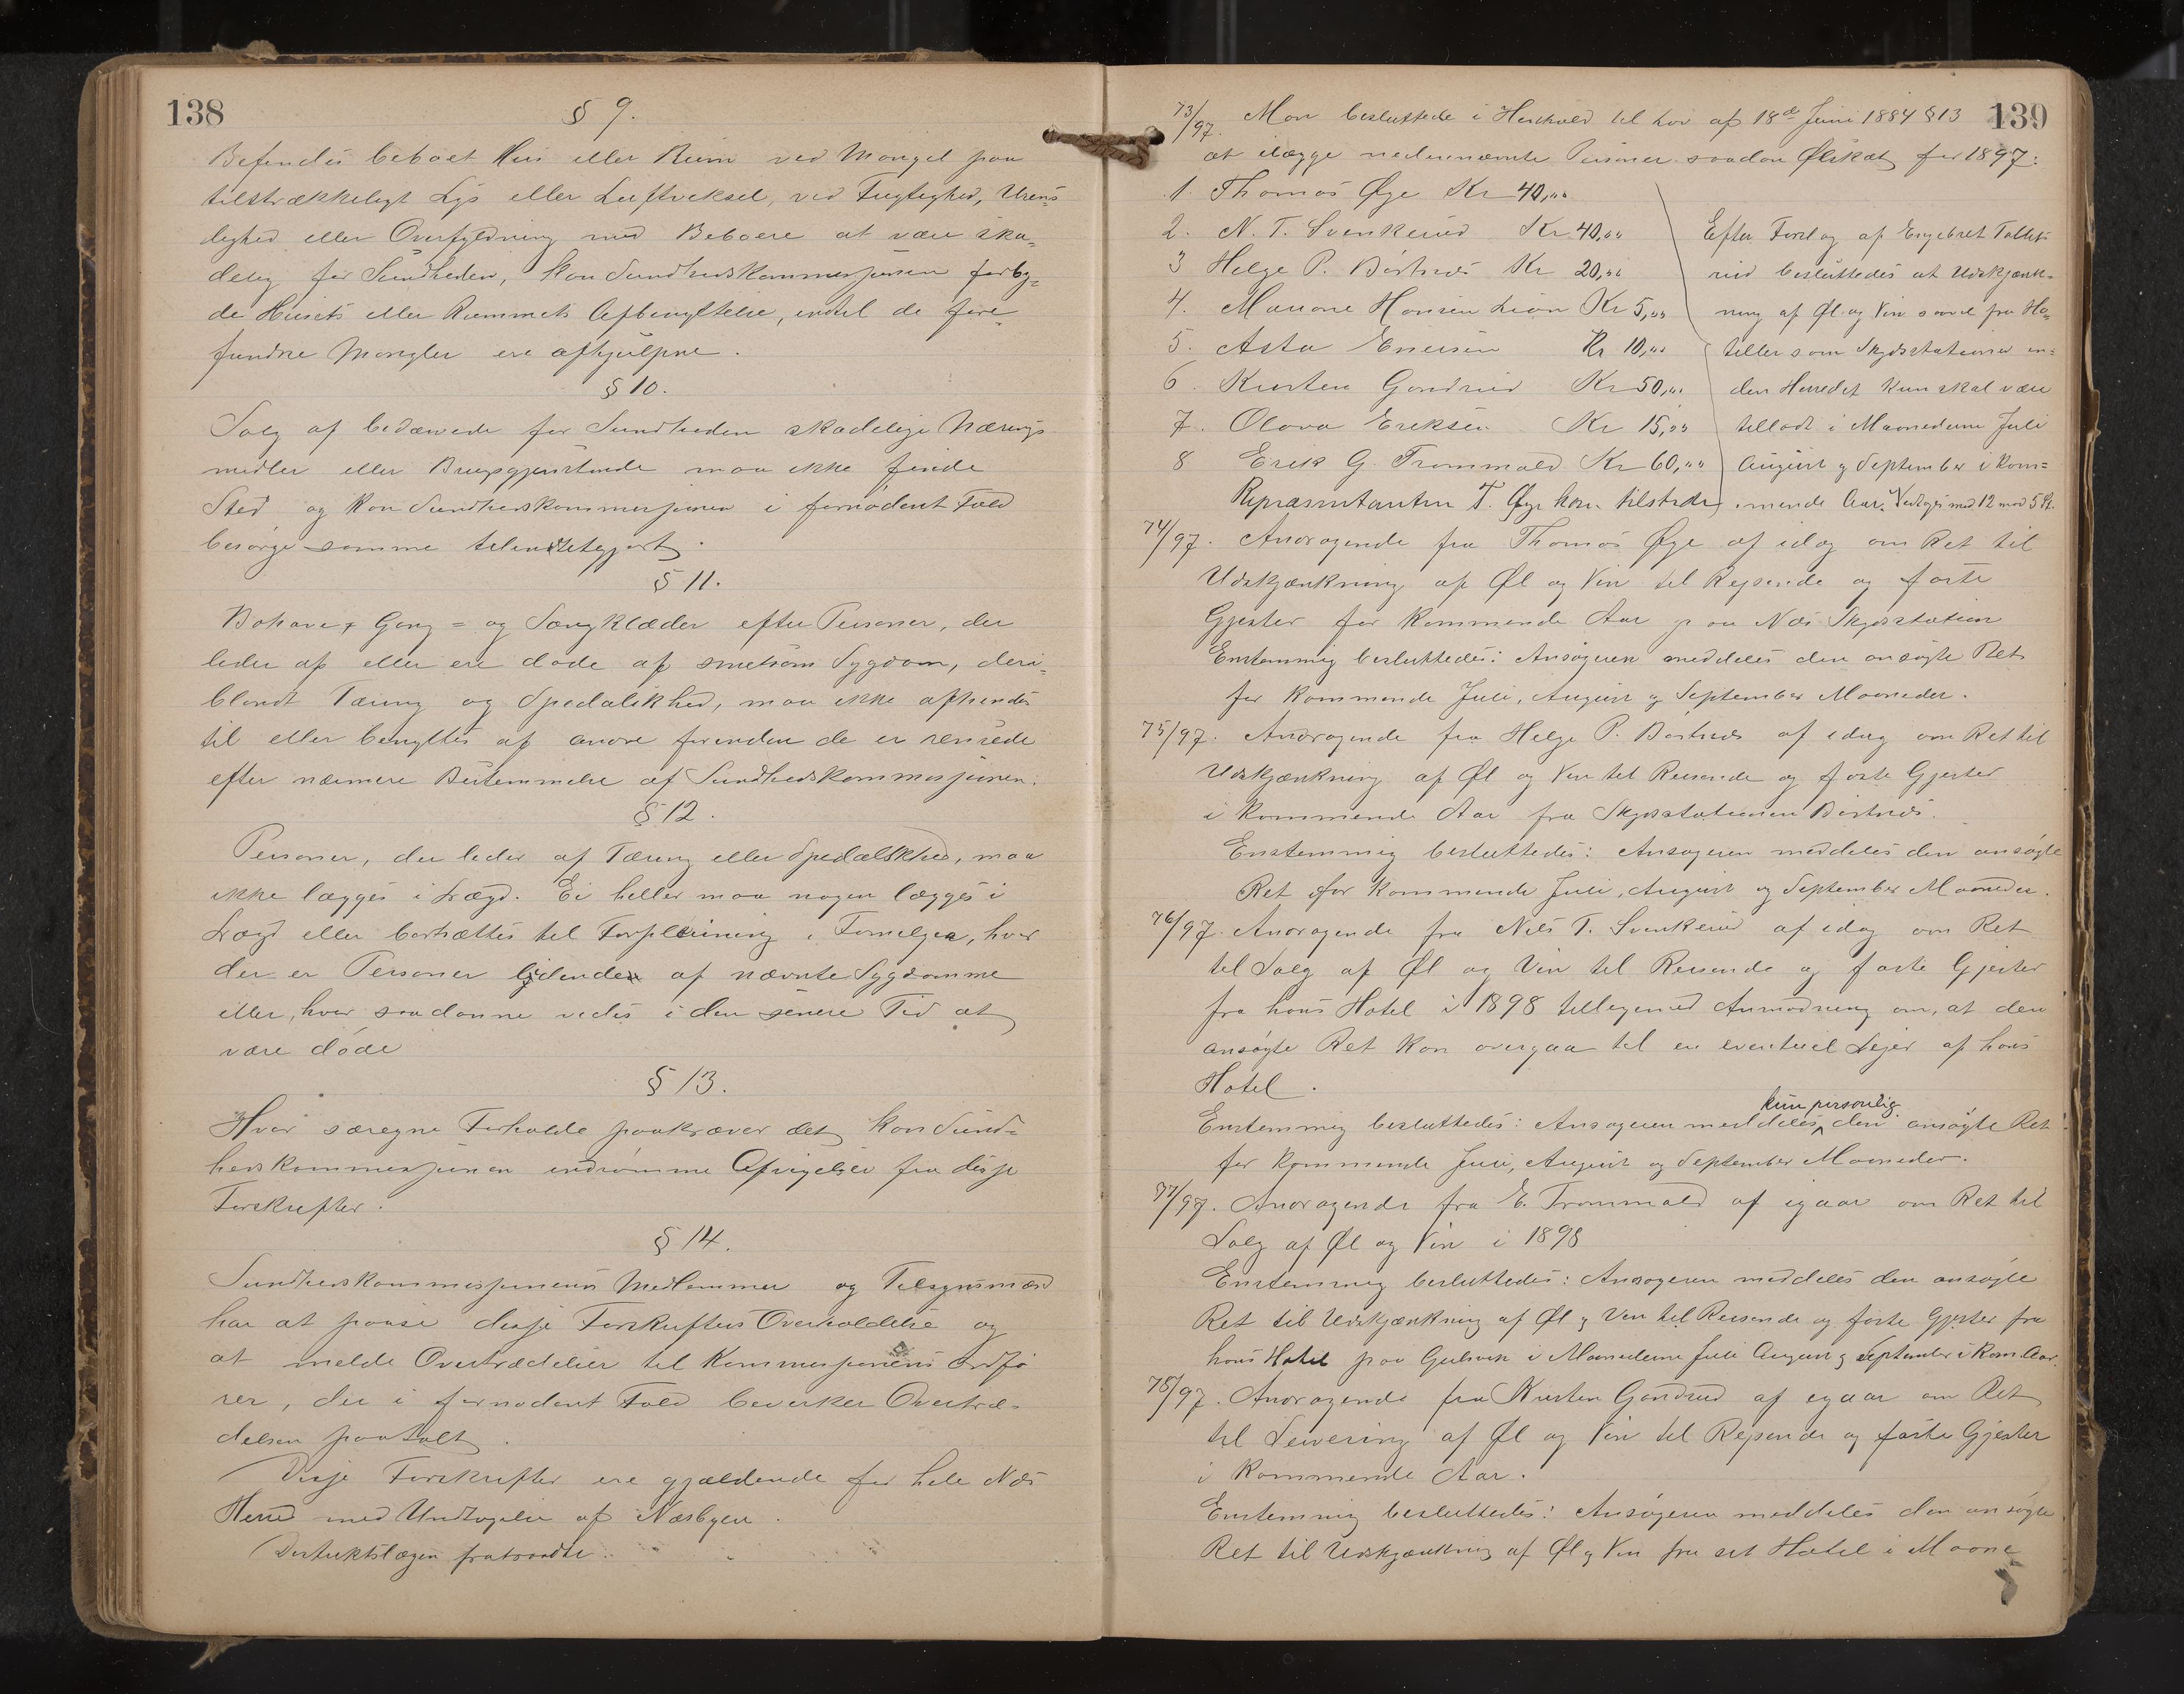 138
§ 9.
Befindes beboet Hus eller Rum ved Mangel paa
tilstrækkeligt Lys eller Luftveksel, ved Fugtighed, Uren=
lighed eller Overfyldning med Beboere at være ska=
delig for Sundheden, kan Sundhedskommisjonen forby=
de Husets eller Rummets Afbenyttelse, indtil de fore=
fundne Mangler ere afhjulpne.
§ 10.
Salg af bedærvede for Sundheden skadelige Nærings
midler eller Brugsgjenstande maa ikke finde
Sted og kan Sundhedskommisjonen i fornødent Fald
besørge samme tilintetgjort.
§ 11.
Bohave, Gang= og Sengklæder efter Personer, der
lider af eller ere døde af smitsom Sygdom, deri=
blandt Tæring og Spedalskhed, maa ikke afhændes
til eller benyttes af andre forinden de er rensede
efter nærmere Bestemmelse af Sundhedskommisjonen.
§ 12.
Personer, der lider af Tæring eller Spedalskhed, maa
ikke lægges i Lægd. Ei heller maa nogen lægges i
Lægd eller bortsættes til Forpleining i Familier, hvor
der er Personer lidende af nævnte Sygdomme
eller, hvor saadanne vides i den senere Tid at
være døde
§ 13.
Hvor særegne Forholde paakræver det kan Sund=
hedskommisjonen indrømme Afvigelser fra disse
Forskrifter.
§ 14.
Sundhedskommisjonens Medlemmer og Tilsynsmænd
har at paase disse Forskrifters Overholdelse og
at melde Overtrædelser til Kommisjonens Ordfø
rer, der i fornødent Fald bevirker Overtræ=
delsen paatalt.
Disse Forskrifter ere gjældende for hele Næs
Herred med Undtagelse af Næsbyen.
Distriktslægen fratraadte.
139
73/97. Man besluttede i Henhold til Lov af 18de Juni 1884 § 13
at ilægge nedennævnte Personer saadan Ølskat for 1897:
1. Thomas Øye Kr 40,00
2. N. T. Svenkerud Kr 40,00
3 Helge P. Børtnes Kr 20,00
4. Mariane Hansen Lien Kr 5,00
5. Asta Enersen Kr 10,00
6. Kristen Gandrud Kr 50,00
7. Olava Eriksen Kr 15,00
8 Erik G. Trommald Kr 60,00
Repræsentanten T. Øye kom tilstede
Efter Forslag af Engebret Tollefs
rud besluttedes at Udskjænk=
ning af Øl og Vin saavel fra Ho=
teller som Skydsstationer in=
den Herredet kun skal være
tilladt i Maanederne Juli
August og September i kom=
mende Aar. Vedtoges med 12 mod 5 St.
74/97. Andragende fra Thomas Øye af idag om Ret til
Udskjænkning af Øl og Vin til Rejsende og faste
Gjester for kommende Aar paa Næs Skydsstation
Enstemmig besluttedes: Ansøgeren meddeles den ansøgte Ret
for kommende Juli, August og September Maaneder.
75/97. Andragende fra Helge P. Børtnes af idag om Ret til
Udskjænkning af Øl og Vin til Reisende og faste Gjester
i kommende Aar fra Skydsstationen Børtnes.
Enstemmig besluttedes: Ansøgeren meddeles den ansøgte
Ret for kommende Juli, August og September Maaneder.
76/97. Andragende fra Nils T. Svenkerud af idag om Ret
til Salg af Øl og Vin til Reisende og faste Gjester
fra hans Hotel i 1898 tilligemed Anmodning om, at den
ansøgte Ret kan overgaa til en eventuel Lejer af hans
Hotel.
kun personlig
Enstemmig besluttedes: Ansøgeren meddeles den ansøgte Ret
for kommende Juli, August og September Maaneder.
77/97. Andragende fra E. Trommald af igaar om Ret til
Salg af Øl og Vin i 1898
Enstemmig besluttedes: Ansøgeren meddeles den ansøgte
Ret til Udskjænkning af Øl og Vin til Reisende og faste Gjester fra
hans Hotel paa Gulsvik i Maanederne Juli August og September i kom. Aar.
78/97. Andragende fra Kristen Gandrud af igaar om Ret
til Servering af Øl og Vin til Rejsende og faste Gjester
i kommende Aar.
Enstemmig besluttedes: Ansøgeren meddeles den ansøgte
Ret til Udskjænkning af Øl og Vin fra sit Hotel i Maane